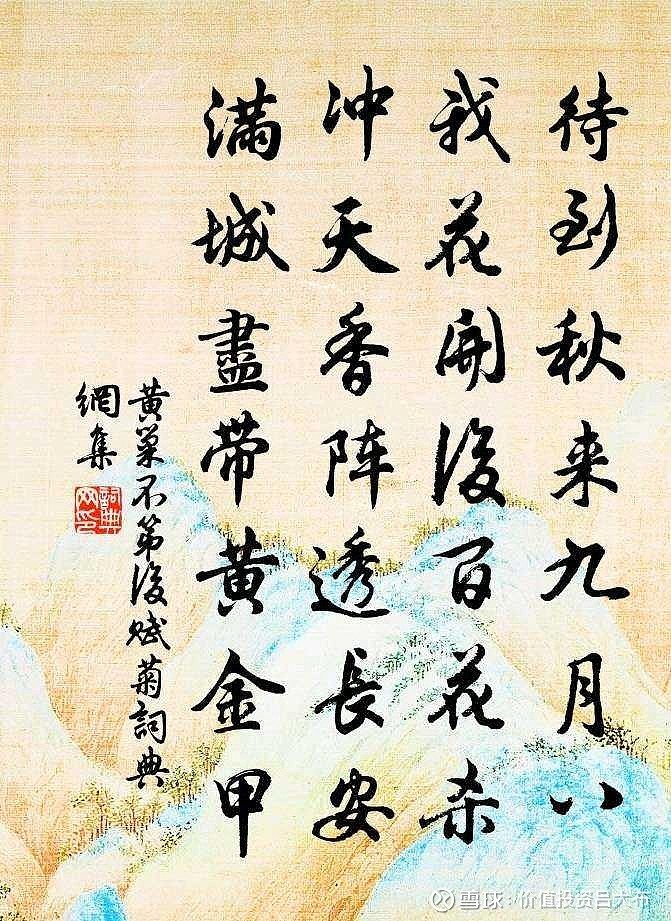 待到秋来九月八
我花開後百花杀
冲天香阵透長安
滿城盡带黄金甲
黄巢不第後赋菊詞典
網集
詞典
网印
雪球：价值投资吕大布